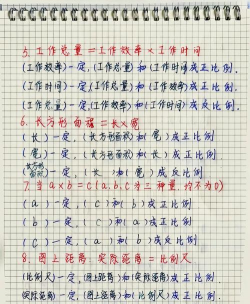 5. 工作总量 = 工作效率 × 工作时间
(工作效率)一定,(工作总量)和(工作时间)成正比例.
(工作时间)一定,(工作总量)和(工作效率)成正比例.
(工作总量)一定,(工作效率)和(工作时间)成反比例.
6. 长方形面积 = 长×宽
(长)一定,(长方形面积)和(宽)成正比例
(宽)一定,(长方形面积)和(长)成正比例.
(长方形面积)一定,(长)和(宽)成反比例
7. 当a×b=c(a,b,c为三种量,均不为0)
(a)一定,(c)和(b)成正比例
(b)一定,(c)和(a)成正比例
(c)一定,(a)和(b)成反比例
8. 图上距离 实际距离 = 比例尺
(比例尺)一定,(图上距离)和(实际距离)成正比例.
(实际距离)一定,(图上距离)和(比例尺)成正比例.